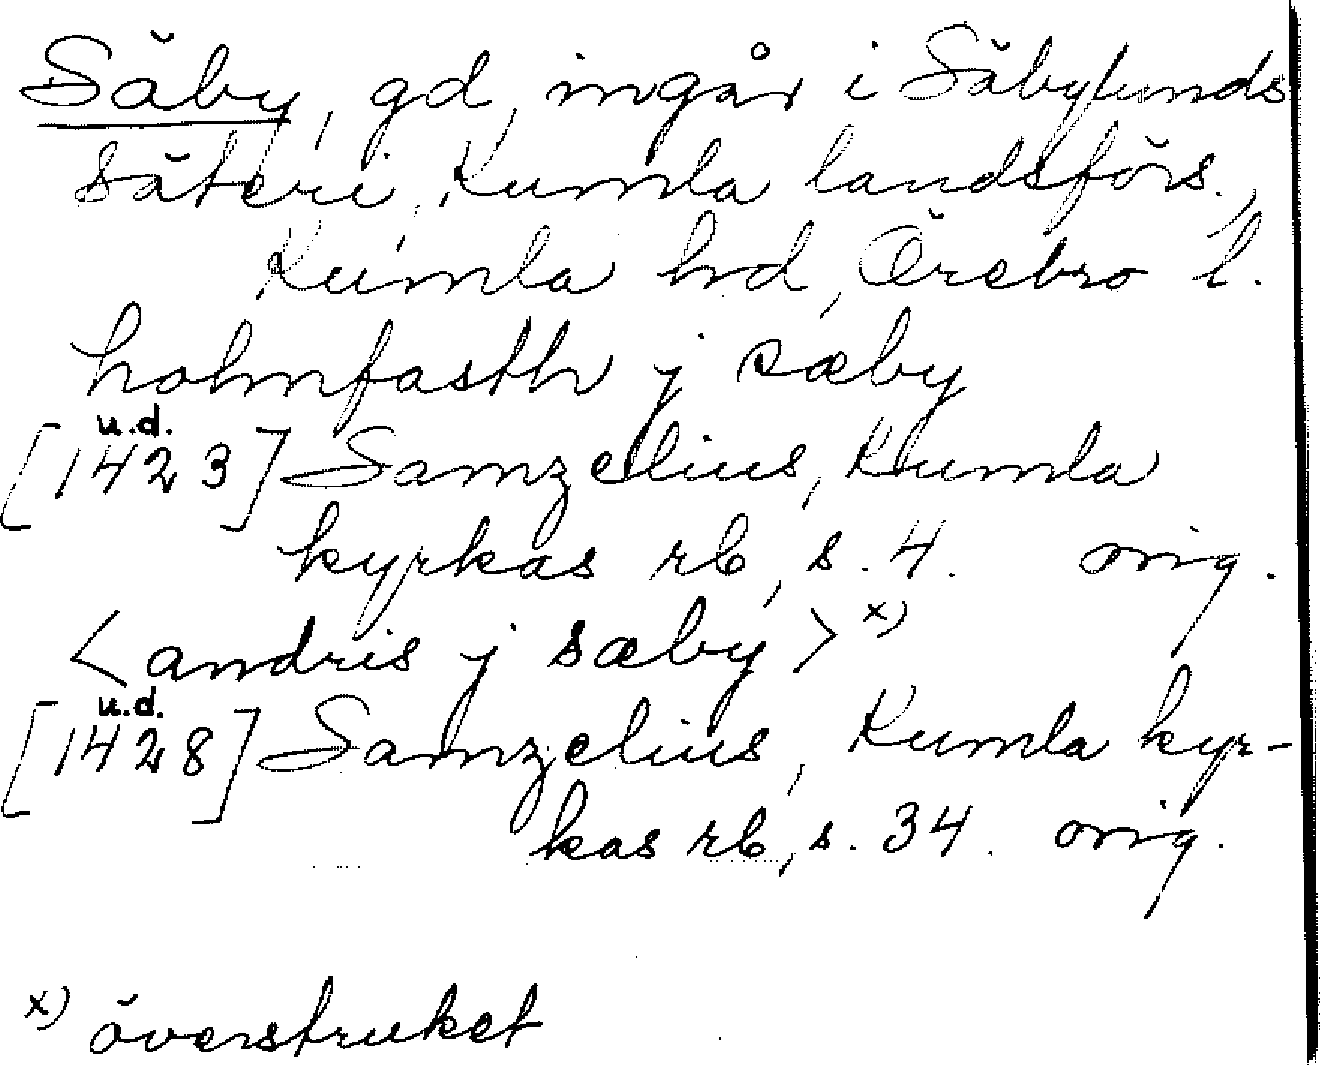 Säby, gd, ingår i Säbylunds
säteri, Kumla landsförs.,
Kumla hd, Örebro l.
holmfasth j sæby
u.d.
[1423] Samzelius, Kumla
kyrkas rb, s. 4. orig.
<andris j sæby> x)
u.d.
[1428] Samzelius, Kumla kyr-
kas rb, s. 34. orig.
x) överstruket